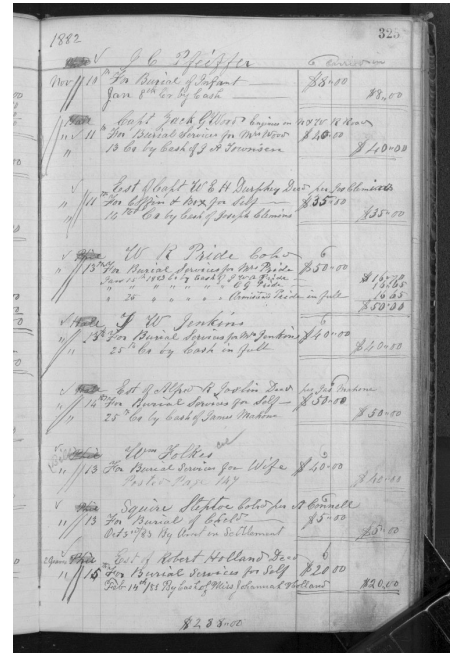 1882
325
J. C. Pfeiffer 6
Nov 10th For Burial of Infant $8.00
Jan 8th Cr by Cash $8.00
Capt Jack G Wood Engineer
" 11th For Burial Service for Mrs Wood $40.00
13 Cr by Cash of J A Townsen $40.00
Est of Capt W E H Durphey Decd per Jos Clemins
" 11th For Coffin & Box for Self $35.00
16th Cr by Cash of Joseph Clemins $35.00
W R Pride Cold 6
" 13th For Burial Services for Mrs Pride $50.00
Jan 15th 1883 by Cash of $16.70
" " " " " O G Pride 16.65
" 26 " " " Pride in full 16.65
$50.00
J W Jenkins 6
" 13th For Burial Services for Mrs Jenkins $40.00
25th Cr by Cash in full $40.00
Est of Alfred R Joslin Decd per Jas Mahone
" 14th For Burial Services for Self $50.00
25th Cr by Cash of James Mahone $50.00
Wm Folkes
" 13 For Burial Services for Wife $40.00
Page 147 $40.00
Squire Steptoe Cold per A Connell
" 13 For Burial of Child $5.00
Oct 3rd /83 By Amt in Settlement $5.00
Est of Robert Holland Decd 6
" 15th For Burial Services for Self $20.00
Feb 14th /83 By Cash of Miss Johannah Holland $20.00
$288.00